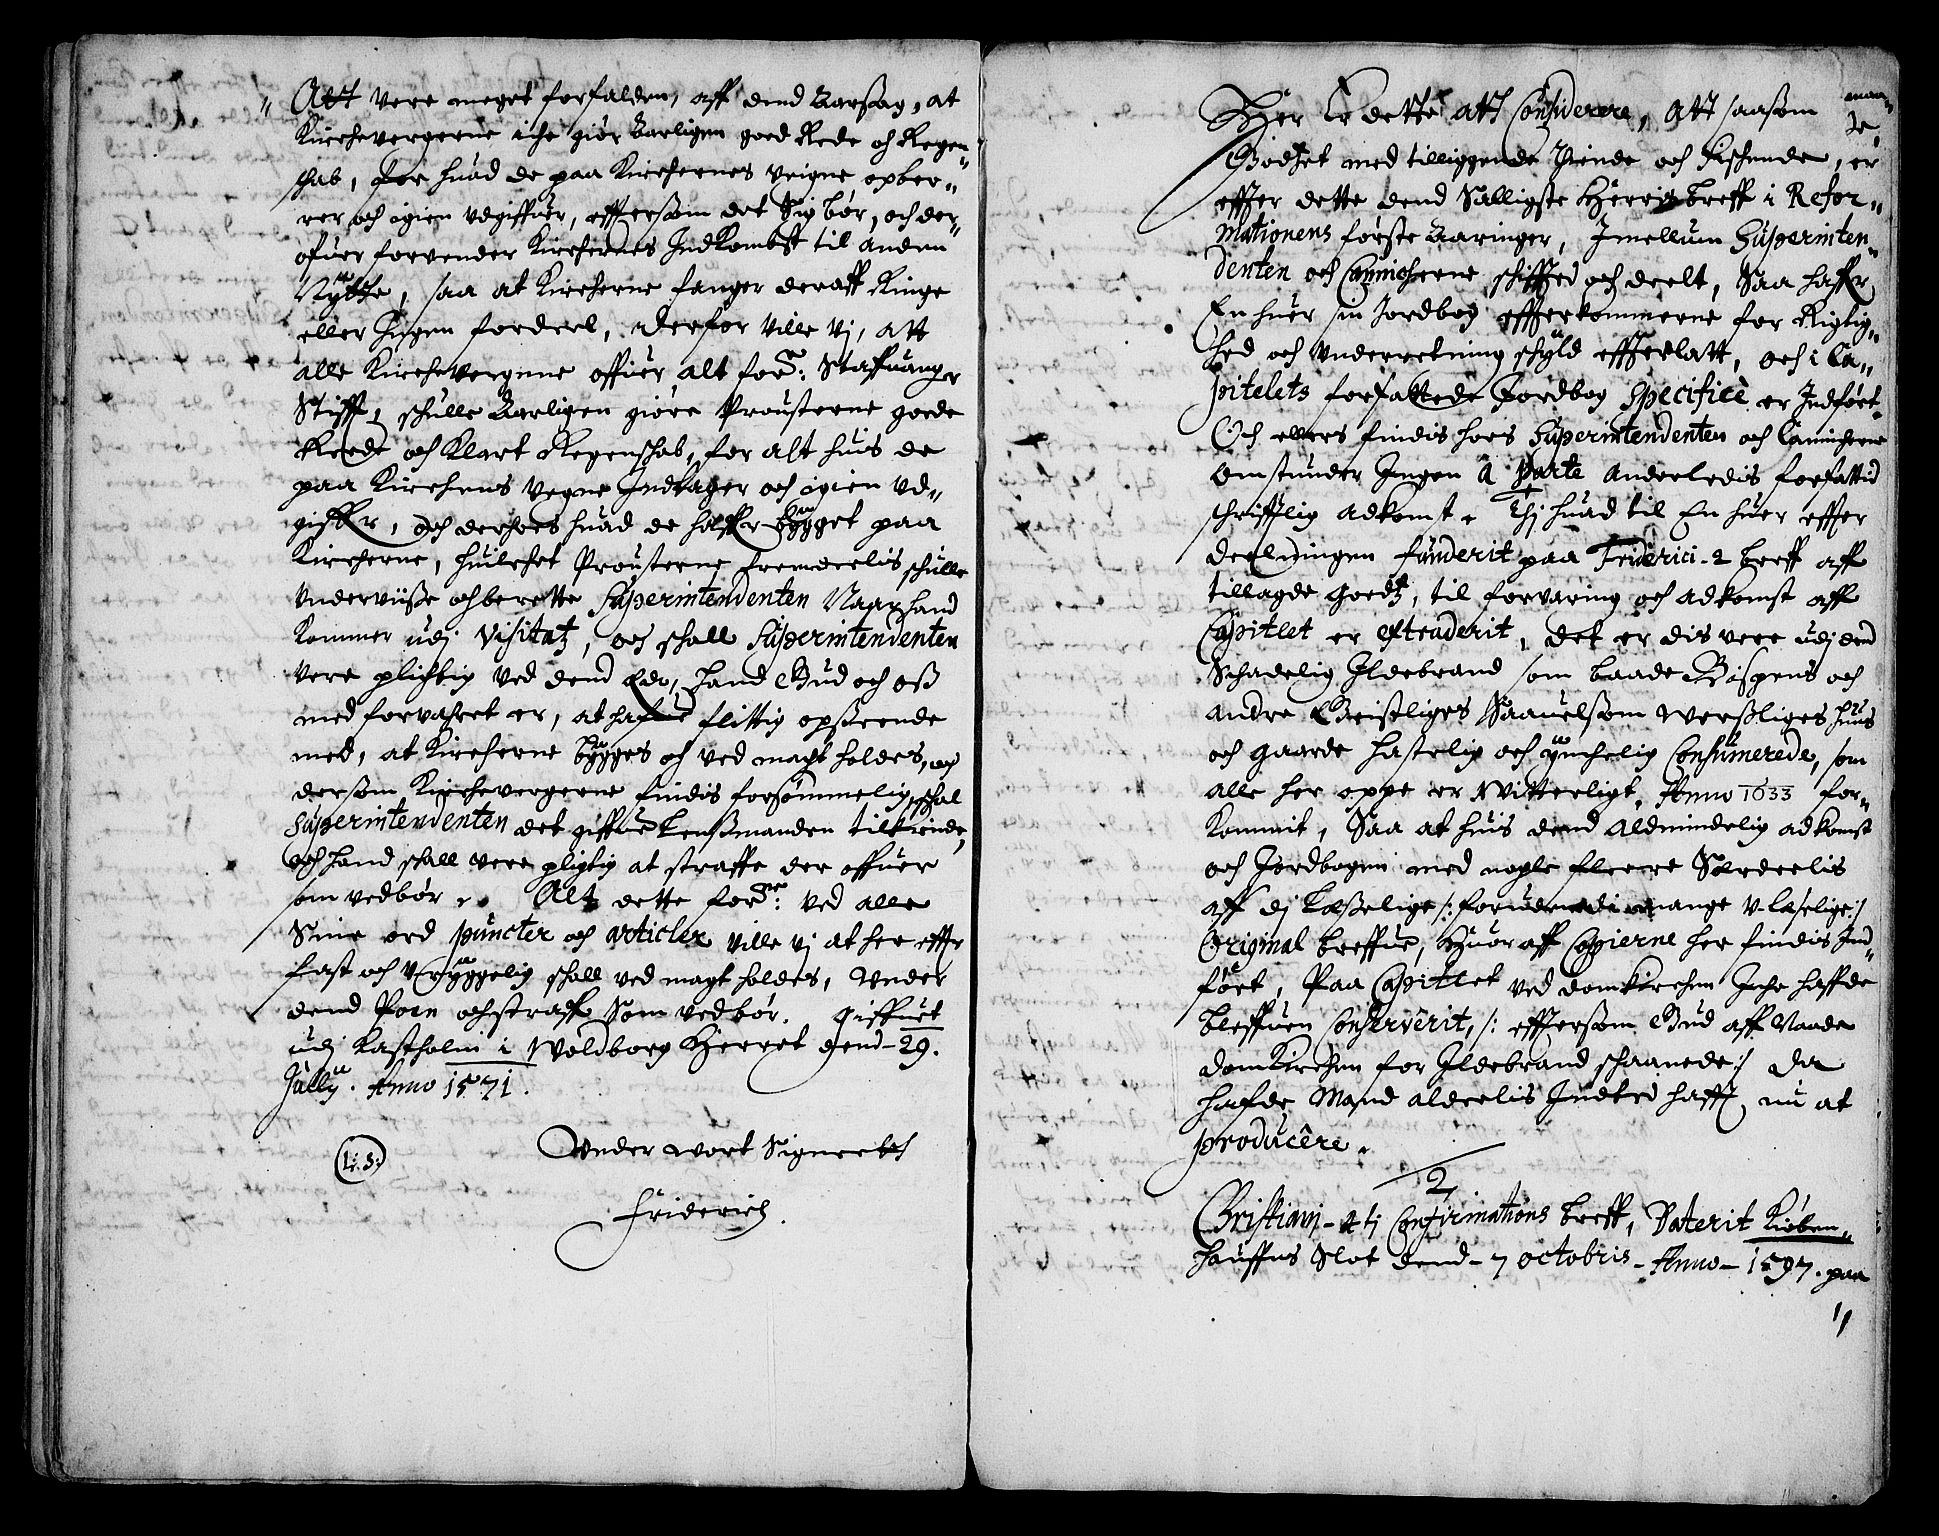 " Att vere meget forfalden, aff dend Aarsag, at
Kirchevergerne iche giør Aarligen goed Rede och Regen-
schab, for huad de paa Kirchernes veigne, opber-
rer och igien udgiffuer, effersom det Sig bør, och der-
ofuer forvender Kirchernes Indkombst til anden
Nytte, saa at Kircherne fanger deraff Ringe
eller Ingen fordeel, derfor ville vj, att
alle Kirchevergerne offuer alt for: Staffuanger
Stifft, schulle Aarligen giøre Prousterne goede
Reede och Klart Regenschab, for alt huis de
paa Kirchens vegne Indtager och igien ud-
giffr, och derhoes huad de haffr bygget paa
Kircherne, huilchet Prousterne fremdeelis schulle
underviisse och berette Superintendenten Naar hand
kommer udj Visitatz, och schall Superintendenten
vere plichtig ved dend Eed, hand Gud och oss
med forvahret er, at hafue flittig opseende
med, at Kircherne bygges och ved magt holdes, och
dersom Kirchevergerne findis forsømmelig, schal
Superintendenten det giffue Lenssmanden tilkiende,
och hand schall vere pligtig at straffe der offuer
som vedbør. Alt dette for: ved alle
Sine ord puncter och articler ville vj at her effr
fast och Uryggelig schall ved magt holdes, Under
dend Poen och straff Som vedbør. Giffuet
udj Kastholm i Woldborg Herret dend - 29.
Jully. Anno 1571.
L: S: Under wort Signeet
Friderich.
Her Er dette att Considerere, Att saasom maa-
te
Godtzet med tilliggende Tiende och Fischende, er
effter dette dend Salligste Herris breff i Refor-
mationens første Aaringer, Imellum Superinten-
denten och Cannicherne schifftet och deelt, Saa haffr
En huer sin Jordbog effterkommerne for Rigtig-
hed och Underretning schyld effterlatt, och i Ca-
pitelets forfattede Jordbog Specificè er Indført.
Och ellers findis hoes Superintendenten och Cannicherne
omstunder Ingen a parte anderledis forfattid
schrifftlig adkomst. Thj huad til En huer effter
deelningen funderit paa Friderici - 2 breff aff
tillagde Goedtz, til forvaring och adkomst aff
Capitlet er extraderit, det er dis vere udj dend
Schadelig Ildebrand som baade Bispens och
andre Geistliges Saauelsom Werssliges huus
och gaarde hastelig och ynchelig Consumerede, som
alle her oppe er Witterligt, Anno 1633 for-
kommit, Saa at huis dend Aldmindelig adkomst
och Jordbogen med nogle fleere Særdeelis
aff dj Læsselige /: foruden de mange U-læselige :/
Original breffue, Huor aff Copierne her findis Ind-
ført, Paa Capitlet ved Domkirchen Iche haffde
bleffuen Conserverit, /: efftersom Gud aff Naade
Domkirchen for Ildebrand schaanede :/ Da
hafde Mand aldeelis Intet hafft, nu at
producêre.
2
Christianj - 4tj Confirmations breff, Daterit Kiøben-
hauffns Slot dend - 7 octobris - Anno - 1597. paa
"